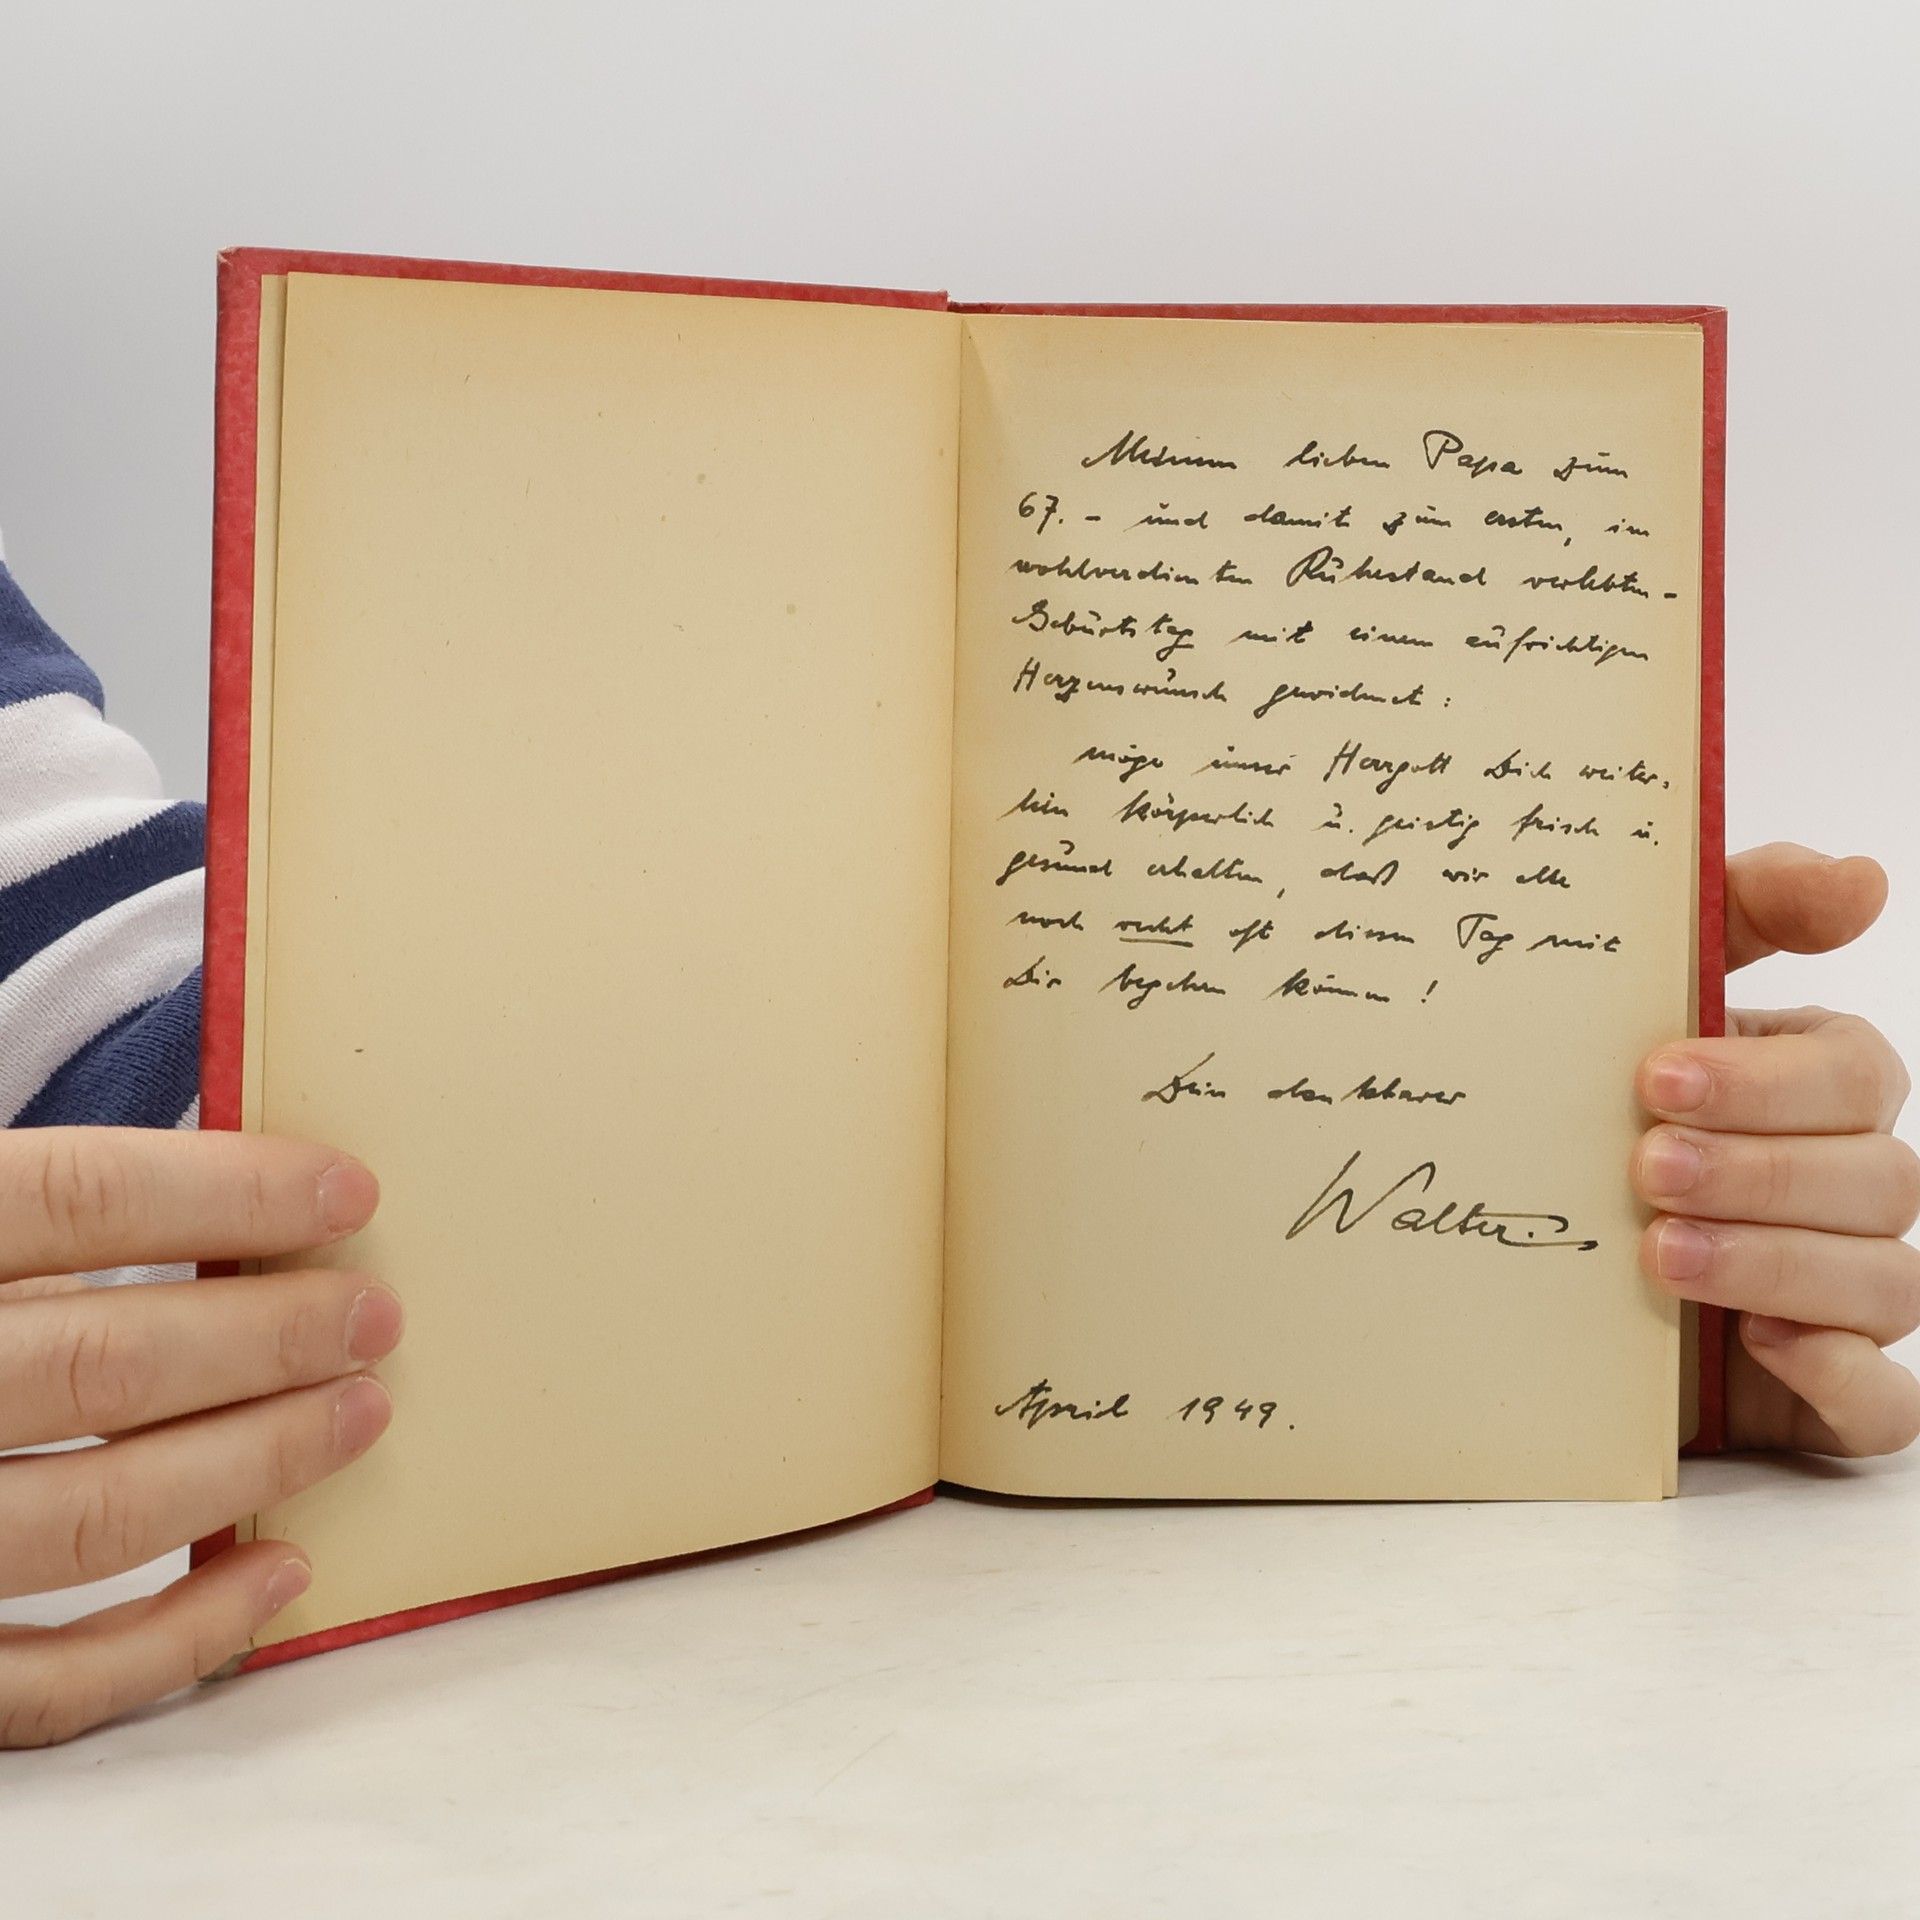 Meinem lieben Papa zum
67. - und damit zum ersten, im
wohlverdienten Ruhestand verlebten -
Geburtstag mit einem aufrichtigen
Herzenswunsch gewidmet:
möge unser Herrgott Dich weiter-
hin körperlich u. geistig frisch u.
gesund erhalten, daß wir alle
noch recht oft diesen Tag mit
Dir begehen können!
Dein dankbarer
Walter.
April 1949.